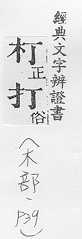 經典文字辨證書
朾正
打俗
(木部·P39)